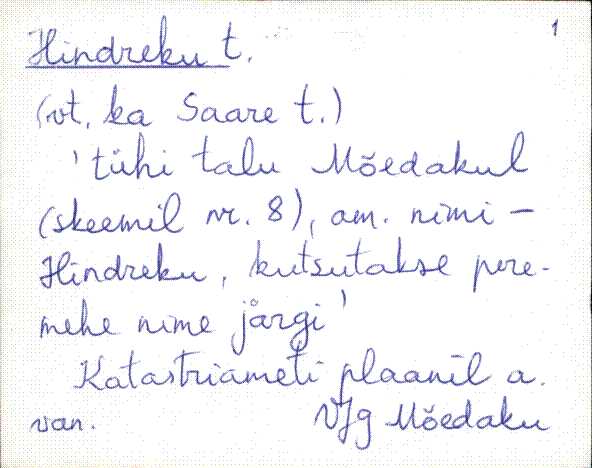 1
Hindreku t.
(vt. ka Saare t.)
'tühi talu Mõedakul
(skeemil nr. 8), am. nimi -
Hindreku, kutsutakse pere-
mehe nime järgi'
Katastriameti plaanil a.
van. VJg Mõedaku